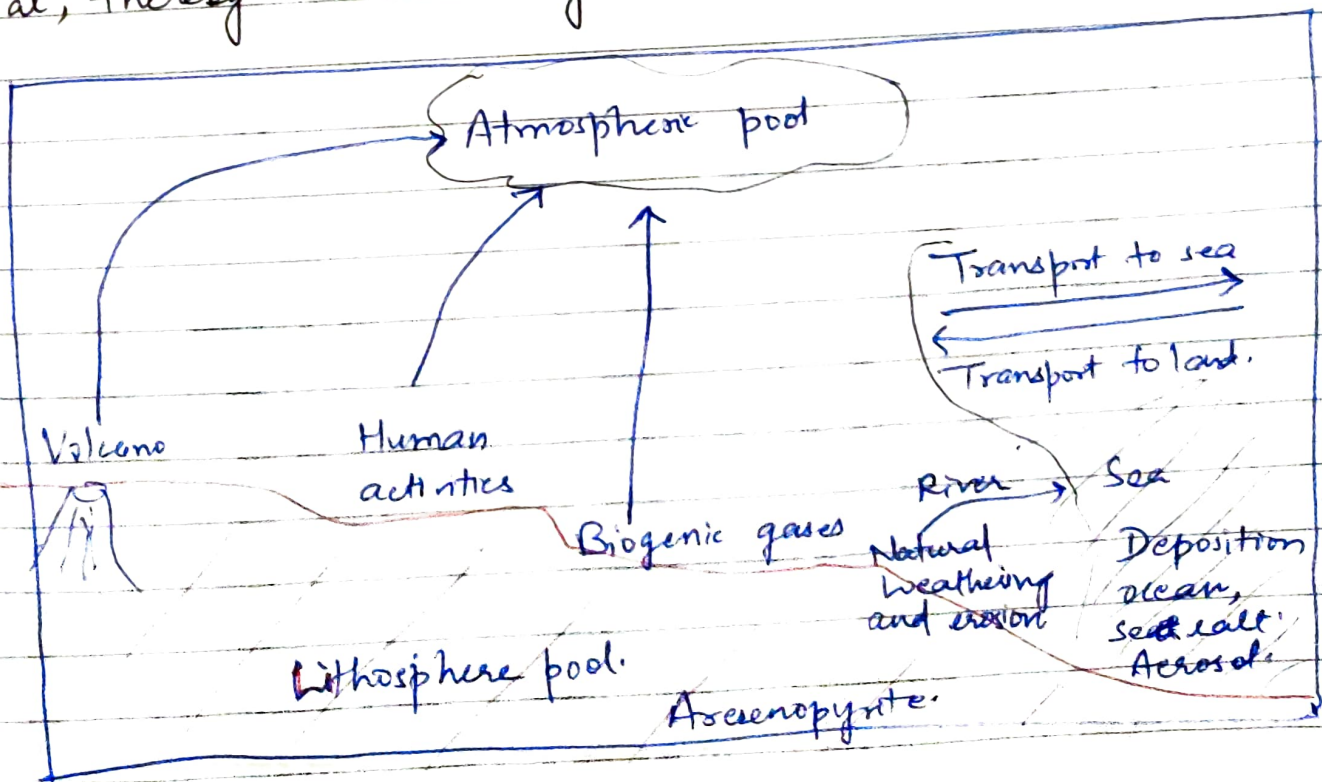 Atmospheric pool
Transport to sea
Transport to land.
Volcano
Human
activities
River
Sea
Biogenic gases
Natural
weatheing
and erosion
Deposition
ocean,
sea salt.
Aerosol.
Lithosphere pool.
Aresenopyrite.